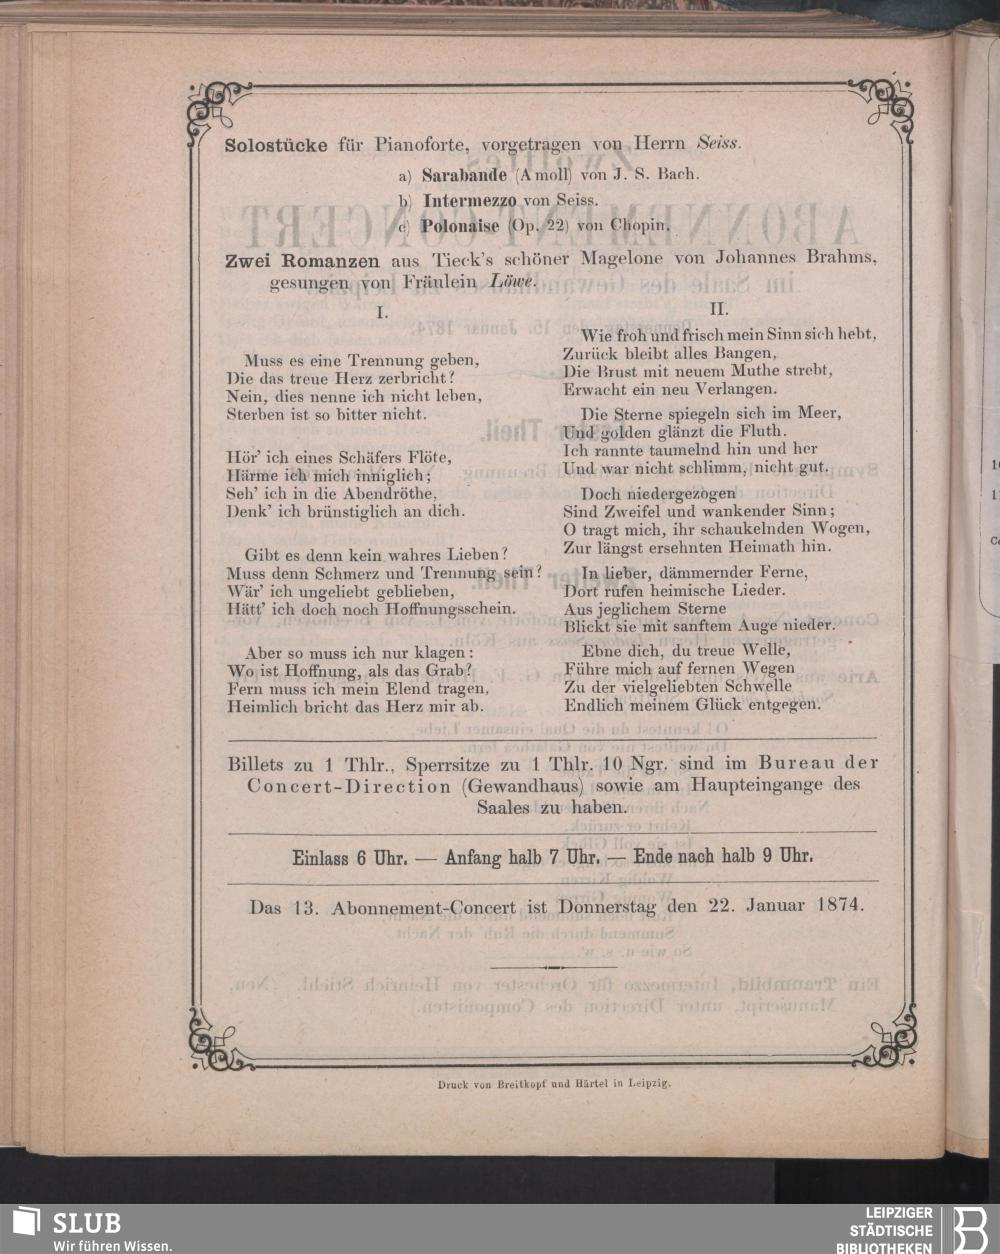 Solostücke für Pianoforte, vorgetragen von Herrn Seiss.
a) Sarabande (A moll) von J. S. Bach.
b) Intermezzo von Seiss.
c) Polonaise (Op. 22) von Chopin.
Zwei Romanzen aus Tieck's schöner Magelone von Johannes Brahms,
gesungen von Fräulein Löwe.
I.
Muss es eine Trennung geben,
Die das treue Herz zerbricht?
Nein, dies nenne ich nicht leben,
Sterben ist so bitter nicht.
Hör' ich eines Schäfers Flöte,
Härme ich mich inniglich;
Seh' ich in die Abendröthe,
Denk' ich brünstiglich an dich.
Gibt es denn kein wahres Lieben?
Muss denn Schmerz und Trennung sein?
Wär' ich ungeliebt geblieben,
Hätt' ich doch noch Hoffnungsschein.
Aber so muss ich nur klagen:
Wo ist Hoffnung, als das Grab?
Fern muss ich mein Elend tragen,
Heimlich bricht das Herz mir ab.
II.
Wie froh und frisch mein Sinn sich hebt,
Zurück bleibt alles Bangen,
Die Brust mit neuem Muthe strebt,
Erwacht ein neu Verlangen.
Die Sterne spiegeln sich im Meer,
Und golden glänzt die Fluth.
Ich rannte taumelnd hin und her
Und war nicht schlimm, nicht gut.
Doch niedergezogen
Sind Zweifel und wankender Sinn;
O tragt mich, ihr schaukelnden Wogen,
Zur längst ersehnten Heimath hin.
In lieber, dämmernder Ferne,
Dort rufen heimische Lieder.
Aus jeglichem Sterne
Blickt sie mit sanftem Auge nieder.
Ebne dich, du treue Welle,
Führe mich auf fernen Wegen
Zu der vielgeliebten Schwelle
Endlich meinem Glück entgegen.
Billets zu 1 Thlr., Sperrsitze zu 1 Thlr. 10 Ngr. sind im Bureau der
Concert-Direction (Gewandhaus) sowie am Haupteingange des
Saales zu haben.
Einlass 6 Uhr. — Anfang halb 7 Uhr. — Ende nach halb 9 Uhr.
Das 13. Abonnement-Concert ist Donnerstag den 22. Januar 1874.
Druck von Breitkopf und Härtel in Leipzig.
SLUB
Wir führen Wissen.
LEIPZIGER
STÄDTISCHE
BIBLIOTHEKEN